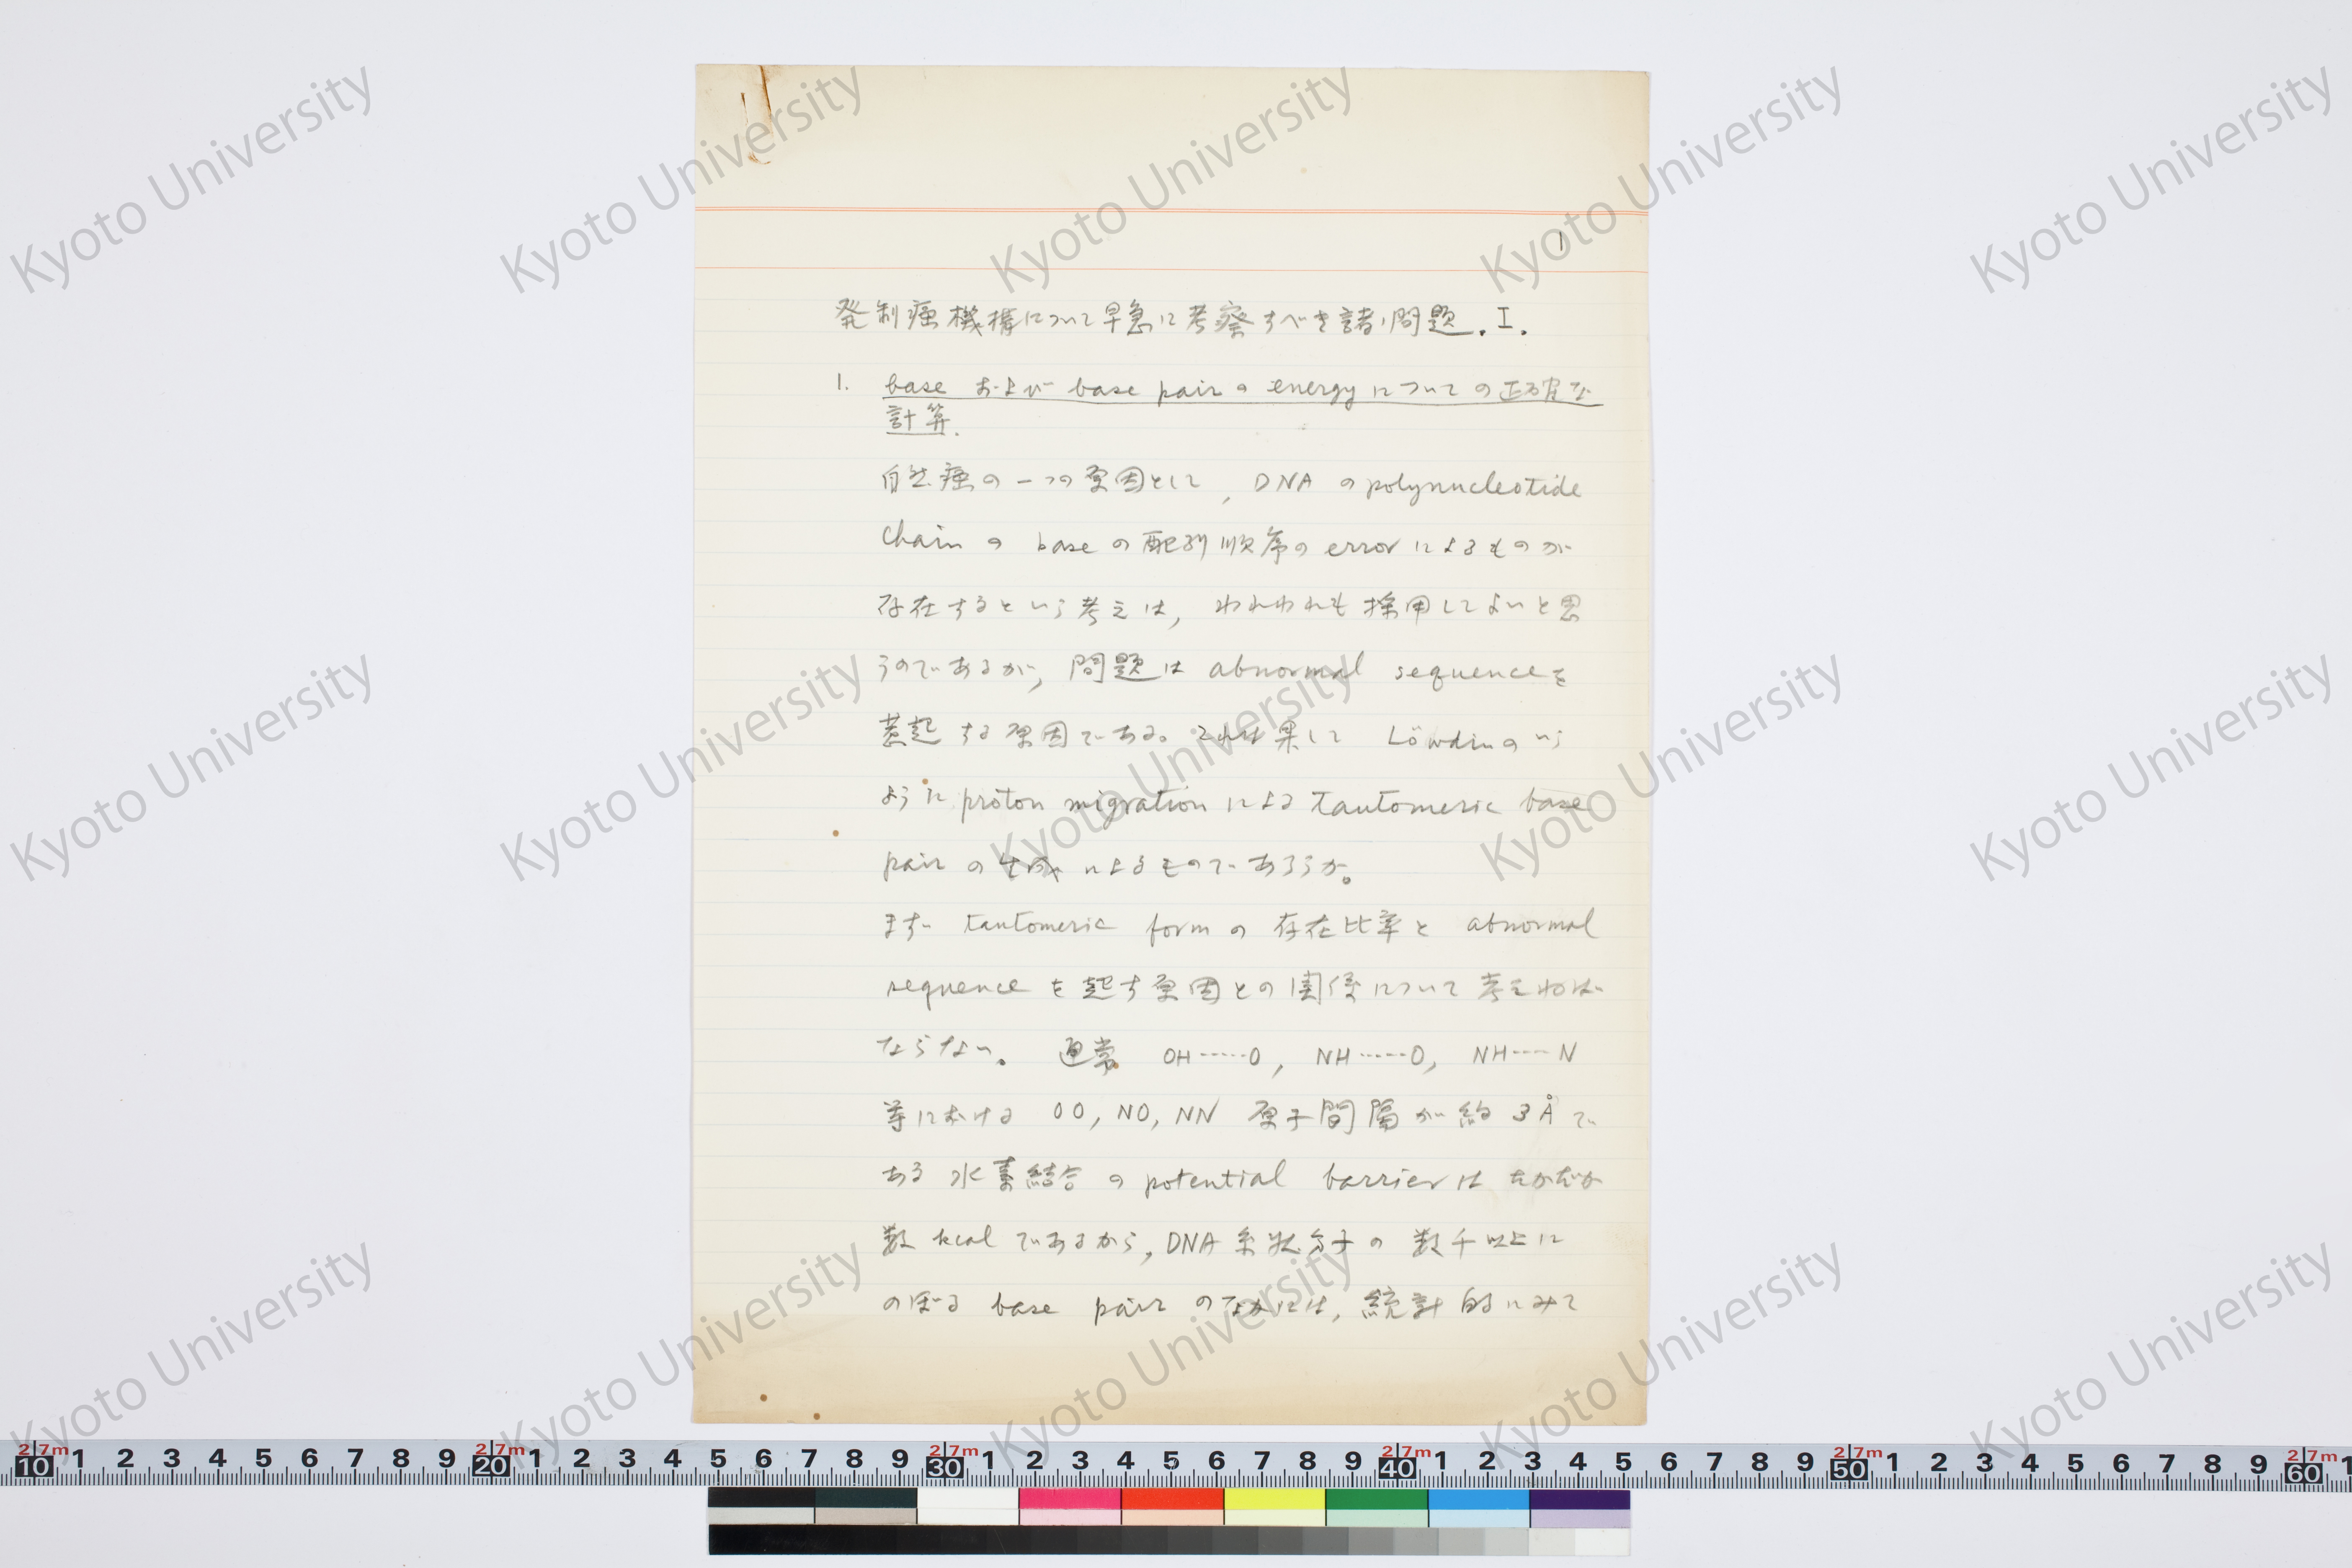 1
発制癌機構について早急に考察すべき諸問題. I.
1. base および base pair の energy についての正確な
計算.
自然癌の一つの原因として, DNA の polynucleotide
chain の base の配列順序の error によるものが
存在するという考えは, われわれも採用してよいと思
うのであるが, 問題は abnormal sequence を
惹起する原因である。それは果して Löwdin のいう
ように proton migration による tautomeric base
pair の生成によるものであろうか。
まず tautomeric form の存在比率と abnormal
sequence を起す原因との関係について考えねば
ならない。 通常 OH-----O, NH-----O, NH----N
等における OO, NO, NN 原子間隔が約 3 Å で
ある水素結合の potential barrier はたかだか
数 kcal であるから, DNA 糸状分子の数千以上に
のぼる base pair のなかには, 統計的にみて
Kyoto University